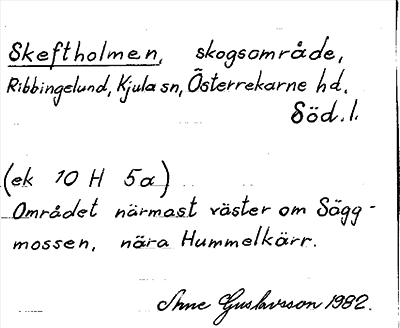 Skeftholmen, skogsområde,
Ribbingelund, Kjula sn, Österrekarne hd.
Söd. l.
(ek 10 H 5a)
Området närmast väster om Sågg-
mossen, nära Hummelkärr.
Arne Gustavsson 1982.